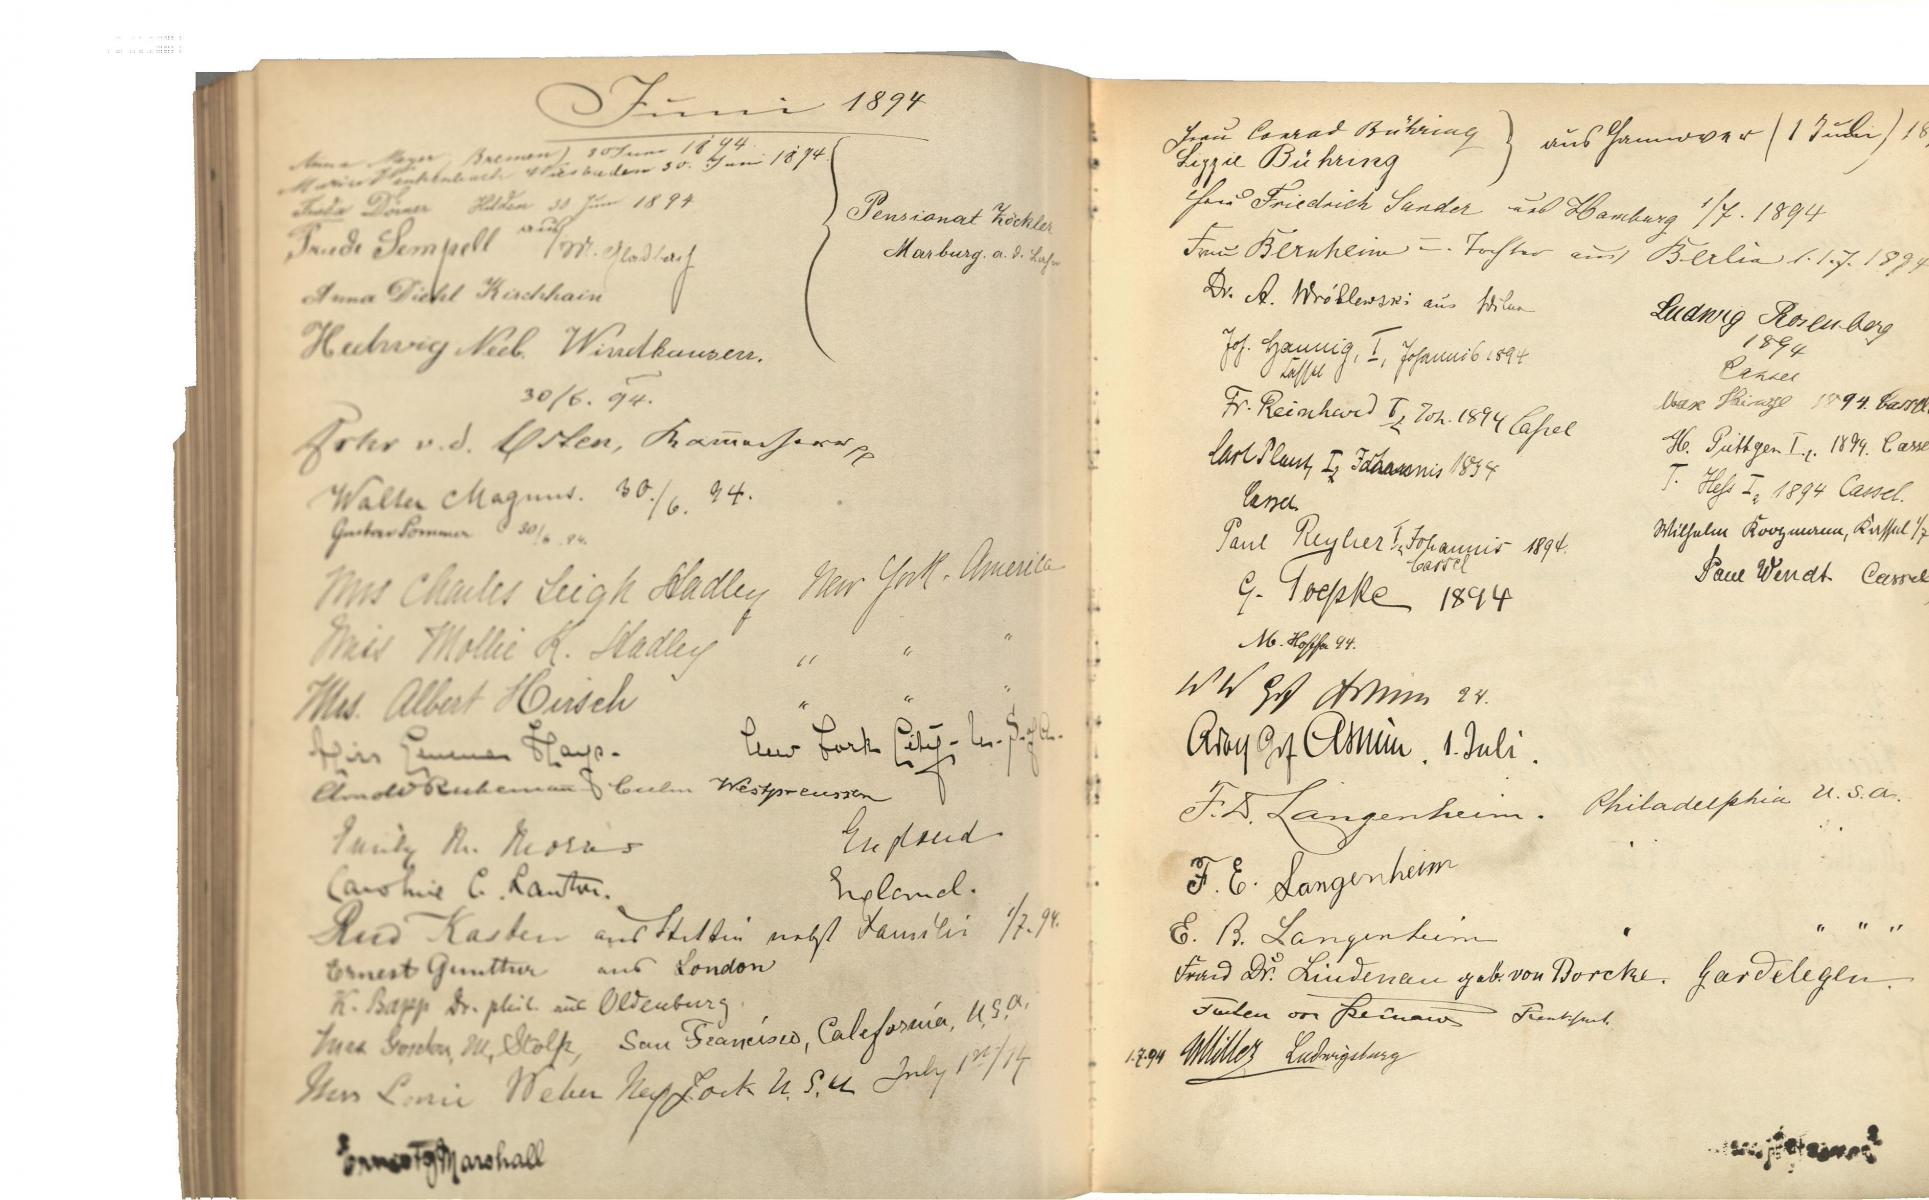 Juni 1894
Anna Meyer, Bremen, 30 Juni 1894.
Wiesbaden 30. Juni 1894
Dörner Hilden 30 Juni 1894
Trude Sempell aus M. Gladbach
Anna Diehl Kirchhain
Hedwig Neeb. Windhausen.
Pensionat Zöckler
Marburg. a. d. Lahn
30/6. 94.
Frhr v. d. Osten, Kammerherr
Walter Magnus. 30./6. 94.
Gustav Sommer 30/6. 94.
Mrs Charles Leigh Hadley New York. America
Miss Mollie K. Hadley " " "
Mrs. Albert Hirsch " " "
Miss Hays. New York City. U. S. of A.
Arnold Culm Westpreussen
Emily M. Morris England
Caroline C. England.
Rud Kasten aus Stettin nebst Familie 1/7. 94.
Ernest Gunther aus London
K. Bapp Dr. phil. aus Oldenburg.
Gordon, M, Stolp, San Francisco, California, U.S.A.
Miss Weber New York U. S. A July 1st/94
Marshall
Frau Conrad Bühring
Lizzie Bühring
aus Hannover (1 Juli) 18
Frau Friedrich Sander aus Hamburg 1/7. 1894
Frau Bernheim u. Tochter aus Berlin 1.7. 1894
Dr. A. Wróblewski aus Wilna
Joh. Hannig, I, Johannis 1894
Cassel
Fr. Reinhard I, Joh. 1894 Cassel
Carl Plaut, I, Johannis 1894
Cassel.
Paul Reyher I, Johannis 1894.
Cassel
G. Toepke 1894
M. 94.
Ludwig Rosenberg
1894
Cassel
Max 1894. Cassel
H. Püttgen I, 1894. Cassel
T. Hess I, 1894 Cassel.
Wilhelm Koozmann, Kassel 1/7
Paul Wendt Cassel
W W Grf Arnim 94.
Adolf Grf Arnim. 1. Juli.
F. D. Langenheim. Philadelphia U.S.A.
F. E. Langenheim
E. B. Langenheim " " "
Frau Dr. Lindenau geb. von Borcke. Gardelegen.
von Frankfurt.
1.7.94 Miller Ludwigsburg